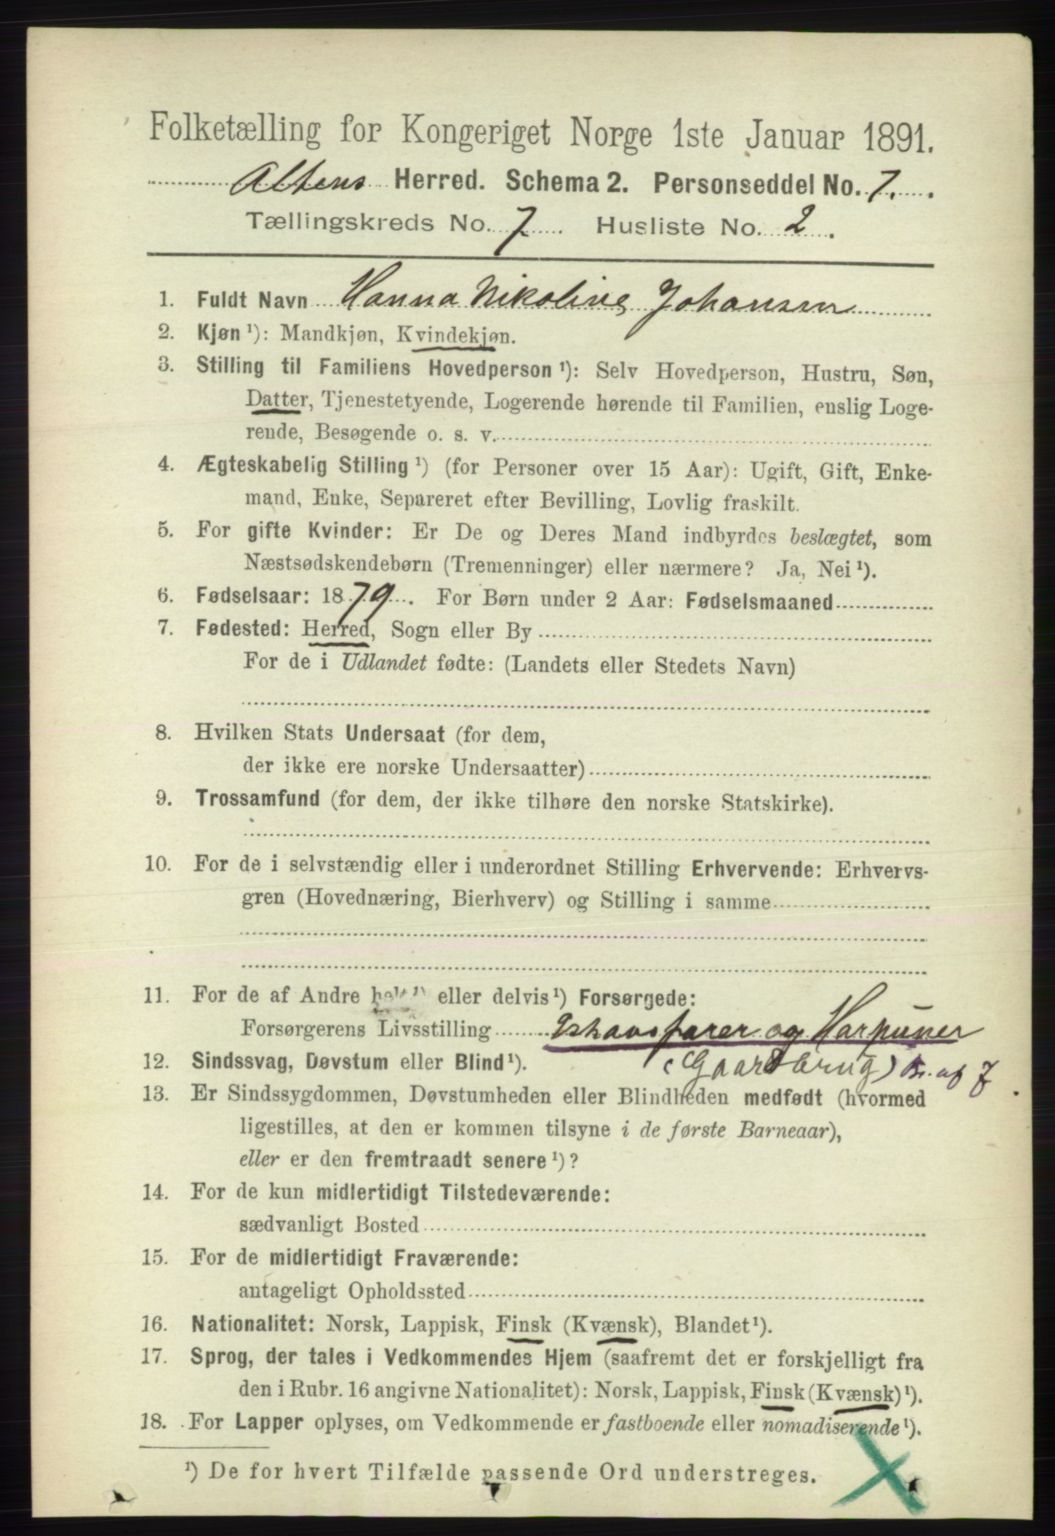 Folketælling for Kongeriget Norge 1ste Januar 1891.
Altens Herred. Schema 2. Personseddel No. 7.
Tællingskreds No. 7. Husliste No. 2.
1. Fuldt Navn Hanna Nikoline Johansen
2. Kjøn ¹): Mandkjøn, Kvindekjøn.
3. Stilling til Familiens Hovedperson ¹): Selv Hovedperson, Hustru, Søn,
Datter, Tjenestetyende, Logerende hørende til Familien, enslig Loge-
rende, Besøgende o. s. v.
4. Ægteskabelig Stilling ¹) (for Personer over 15 Aar): Ugift, Gift, Enke-
mand, Enke, Separeret efter Bevilling, Lovlig fraskilt.
5. For gifte Kvinder: Er De og Deres Mand indbyrdes beslægtet, som
Næstsødskendebørn (Tremenninger) eller nærmere? Ja, Nei ¹).
6. Fødselsaar: 1879. For Børn under 2 Aar: Fødselsmaaned
7. Fødested: Herred, Sogn eller By
For de i Udlandet fødte: (Landets eller Stedets Navn)
8. Hvilken Stats Undersaat (for dem,
der ikke ere norske Undersaatter)
9. Trossamfund (for dem, der ikke tilhøre den norske Statskirke).
10. For de i selvstændig eller i underordnet Stilling Erhvervende: Erhvervs-
gren (Hovednæring, Bierhverv) og Stilling i samme
11. For de af Andre helt ¹) eller delvis ¹) Forsørgede:
Forsørgerens Livsstilling Ishavsfarer og Harpuner
12. Sindssvag, Døvstum eller Blind ¹). (Gaardbrug) Br. af J
13. Er Sindssygdommen, Døvstumheden eller Blindheden medfødt (hvormed
ligestilles, at den er kommen tilsyne i de første Barneaar),
eller er den fremtraadt senere ¹)?
14. For de kun midlertidigt Tilstedeværende:
sædvanligt Bosted
15. For de midlertidigt Fraværende:
antageligt Opholdssted
16. Nationalitet: Norsk, Lappisk, Finsk (Kvænsk), Blandet ¹).
17. Sprog, der tales i Vedkommendes Hjem (saafremt det er forskjelligt fra
den i Rubr. 16 angivne Nationalitet): Norsk, Lappisk, Finsk (Kvænsk) ¹).
18. For Lapper oplyses, om Vedkommende er fastboende eller nomadiserende ¹).
¹) De for hvert Tilfælde passende Ord understreges.